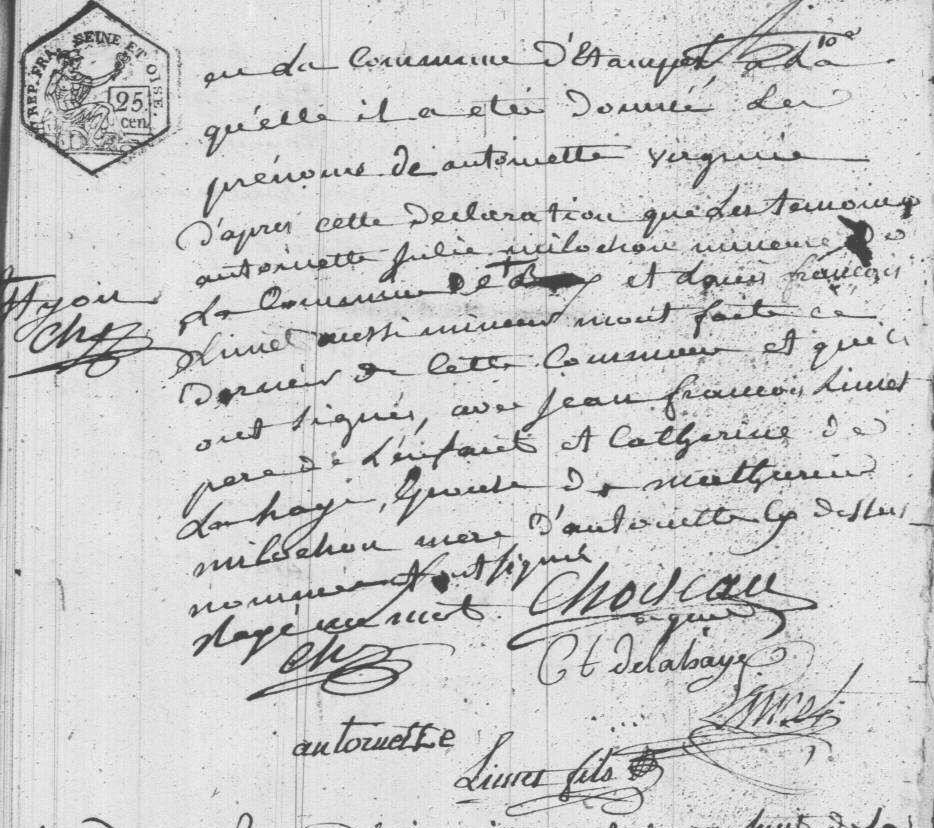 REP. FRA. SEINE ET OISE.
25
cen.
en La Commune D'Etampes a La
qu'elle il a eté Donné Les
prénoms de antoinette virginie
D'apres cette Declaration que Les temoins
antoinette Julie milochon mineure De
La Commune De et Louis françois
Limet aussi mineur mont faite ce
Dernier De Cette Commune et qu'ils
ont Signés, avec Jean françois Limet
pere de L'enfant et Catherine de
Lahaye, Epouse De mathurin
milochon mere D'antoinette Cy dessus
nommée ont signé
Rayé un mot
Ch
Choiseau
Ct delahaye
Limet
antoinette
Limet fils